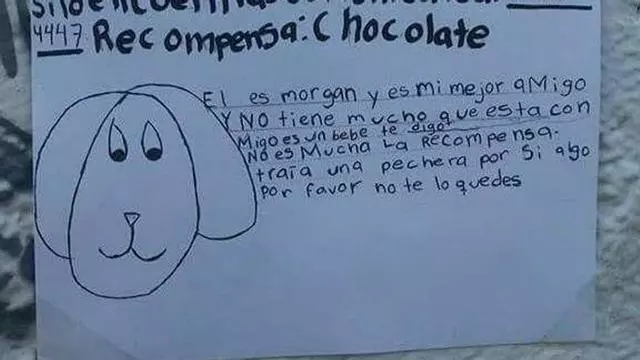 4447 Recompensa: Chocolate
El es morgan y es mi mejor aMigo
Y NO tiene mucho que esta con
Migo es un bebe te digo.
NO es Mucha La Recompensa.
traía una pechera por si algo
Por favor no te lo quedes